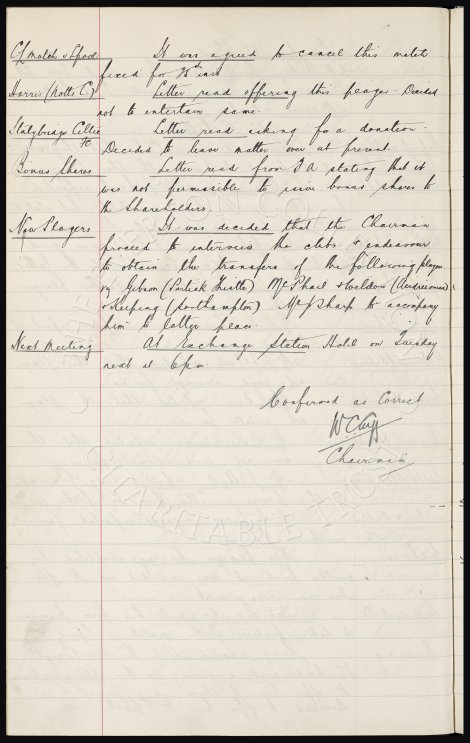 C/L match v L'pool It was agreed to cancel this match
fixed for 25th inst
Harris (Notts C) Letter read offering this player. Decided
not to entertain same.
Stalybridge Celtic Letter read asking for a donation.
FC Decided to leave matter over at present.
Bonus Shares Letter read from FA stating that it
was not permissible to issue bonus shares to
the Shareholders.
New Players It was decided that the Chairman
proceed to interview the clubs & endeavour
to obtain the transfers of the following players
viz Gibson (Partick Thistle) McPhail & Weldon (Airdrieonians)
& Keeping (Southampton) Mr J Sharp to accompany
him to latter place.
Next Meeting At Exchange Station Hotel on Tuesday
next at 6pm
Confirmed as Correct
W.C. Cuff
Chairman
CHARITABLE TRUST